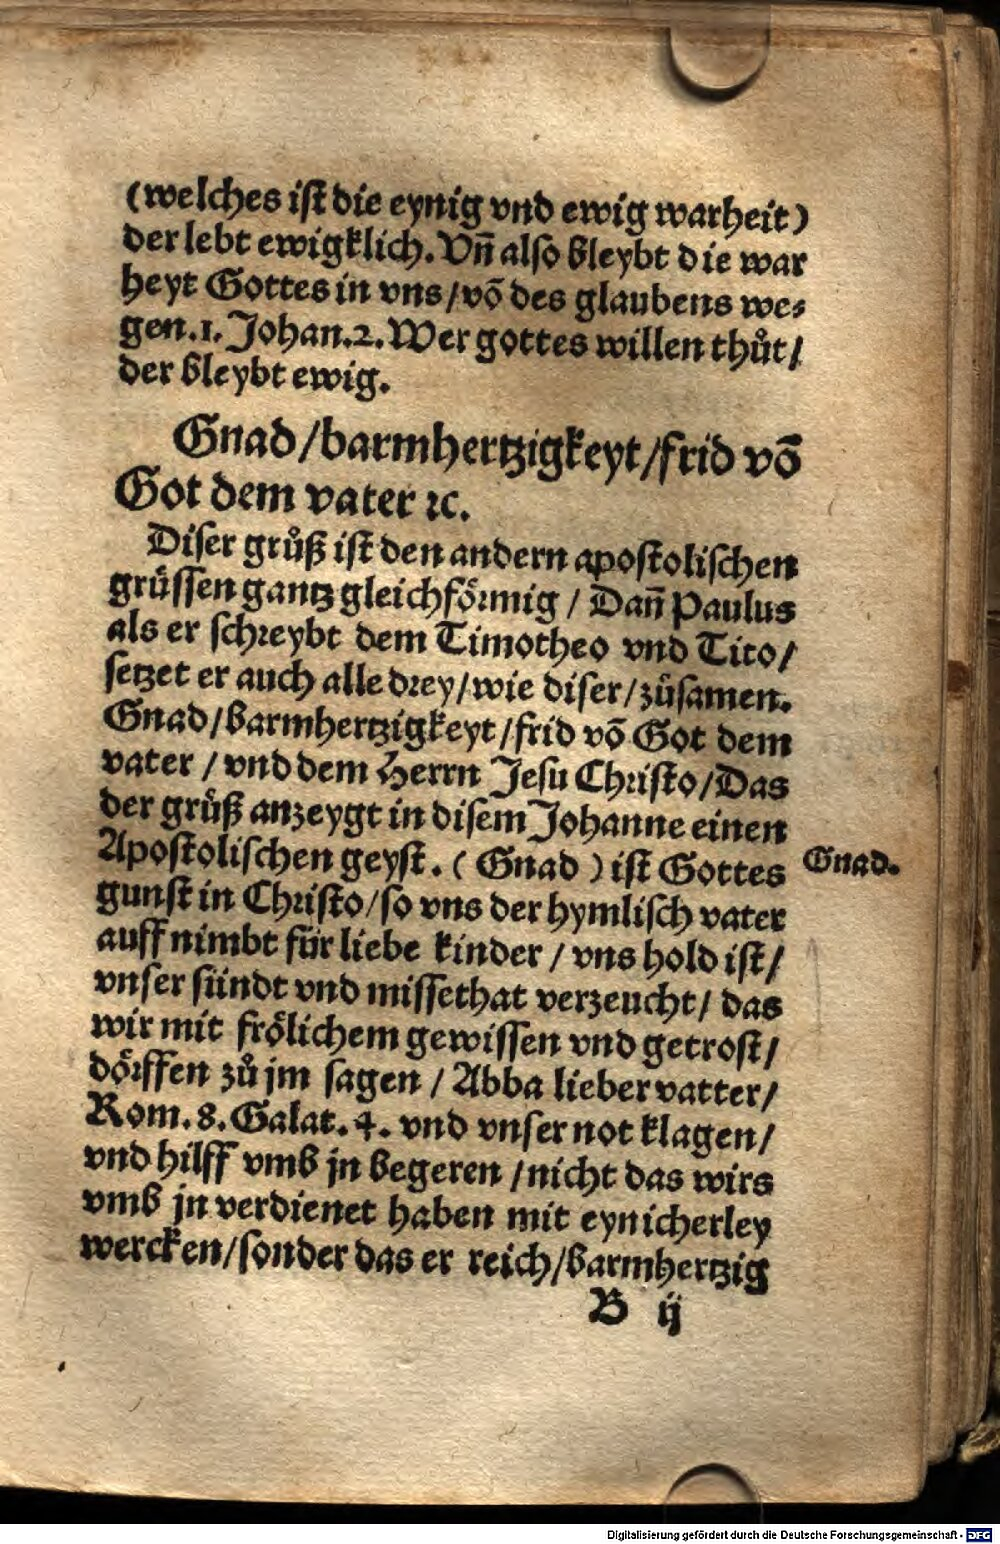 (welches iſt die eynig vnd ewig warheit)
der lebt ewigklich. Vn̄ alſo bleybt die war
heyt Gottes in vns / vō des glaubens we⸗
gen. 1. Johan. 2. Wer gottes willen thůt /
der bleybt ewig.
Gnad / barmhertzigkeyt / frid vō
Got dem vater ꝛc.
Diſer grůß iſt den andern apoſtoliſchen
grüſſen gantz gleichförmig / Dan̄ Paulus
als er ſchreybt dem Timotheo vnd Tito /
ſetzet er auch alle drey / wie diſer / zůſamen.
Gnad / barmhertzigkeyt / frid vō Got dem
vater / vnd dem Herrn Jeſu Chriſto / Das
der grůß anzeygt in diſem Johanne einen
Apoſtoliſchen geyſt. ( Gnad ) iſt Gottes
Gnad.
gunſt in Chriſto / ſo vns der hymliſch vater
auff nimbt für liebe kinder / vns hold iſt /
vnſer ſündt vnd miſſethat verzeucht / das
wir mit frölichem gewiſſen vnd getroſt /
dörffen zů jm ſagen / Abba lieber vatter /
Rom. 8. Galat. 4. vnd vnſer not klagen /
vnd hilff vmb jn begeren / nicht das wirs
vmb jn verdienet haben mit eynicherley
wercken / ſonder das er reich / barmhertzig
B ij
Digitalisierung gefördert durch die Deutsche Forschungsgemeinschaft - DFG